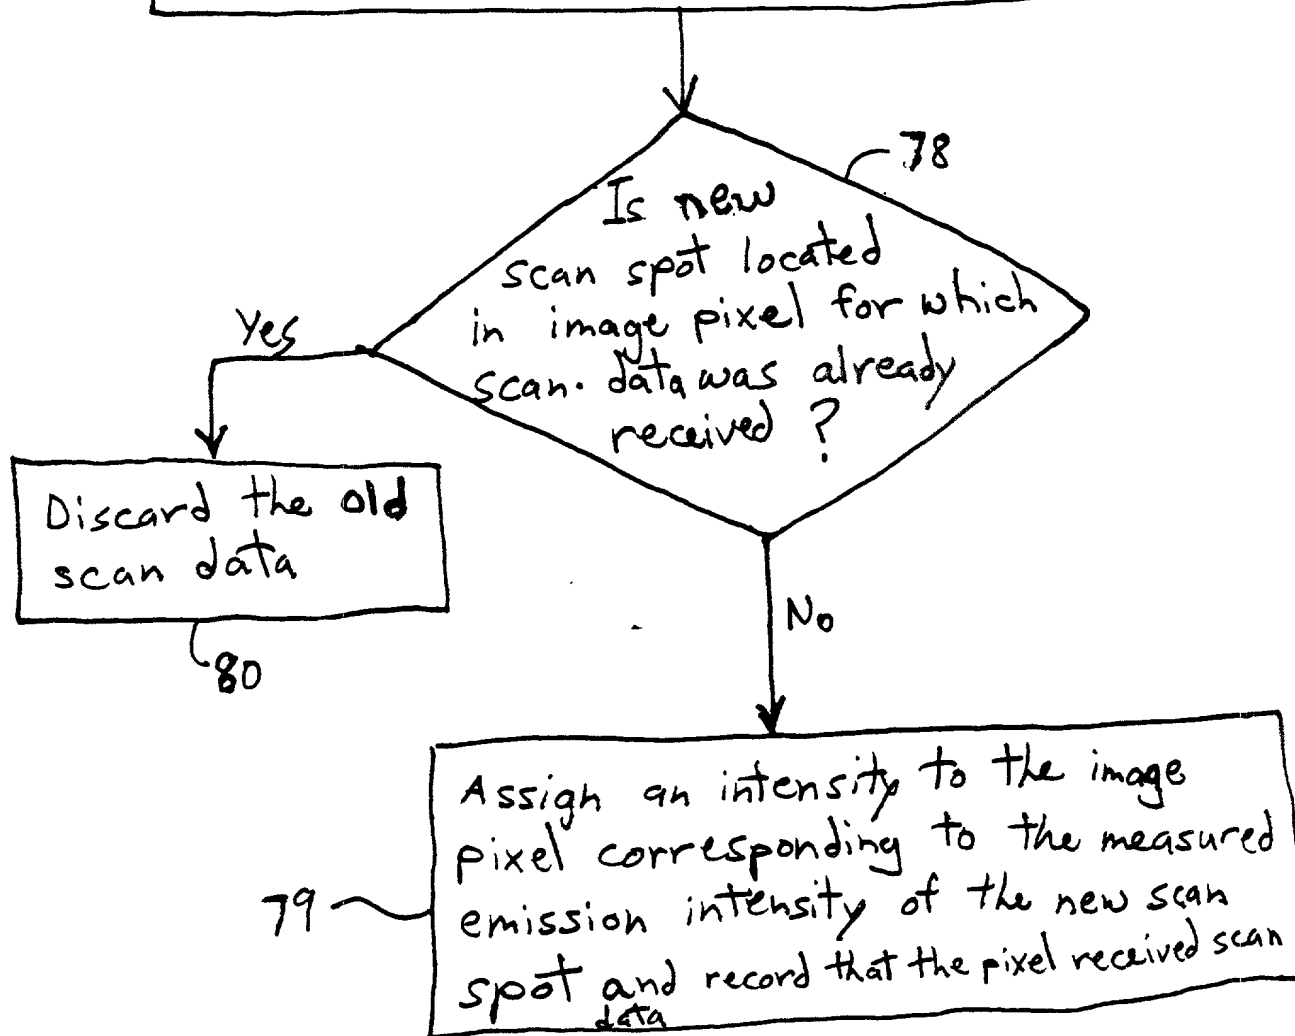 78
Is new
scan spot located
in image pixel for which
scan. data was already
received ?
Yes
Discard the old
scan data
80
No
Assign an intensity to the image
pixel corresponding to the measured
emission intensity of the new scan
spot and record that the pixel received scan
data
79